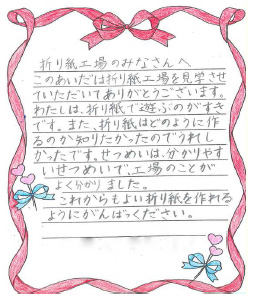 折り紙工場のみなさんへ
このあいだは折り紙工場を見学させ
ていただいてありがとうございます。
わたしは、折り紙で遊ぶのがすき
です。また、折り紙はどのように作
るのか知りたかったのでうれし
かったです。せつめいは、分かりやす
いせつめいで、工場のことが
よく分かりました。
これからもよい折り紙を作れる
ようにがんばってください。